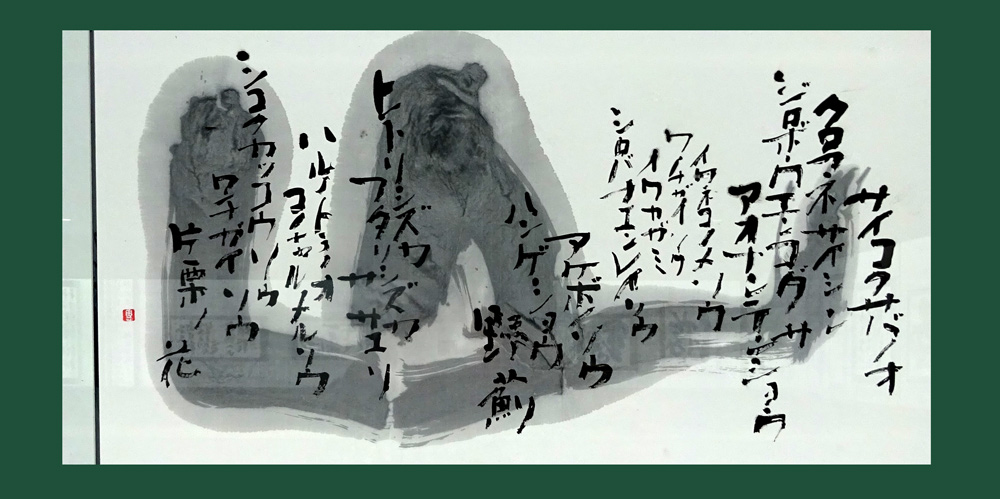 サイコクサバノオ
クロフネサイシン
ジロボウエンゴグサ
アオテンナンショウ
イワネコノメソウ
ワチガイソウ
イワカガミ
シロバナエンレイソウ
アケボノソウ
ハンゲショウ
野薊
ヒトリシズカ
フタリシズカ
ササユリ
ハルトラノオ
シコクカッコウソウ
ワチガイソウ
片栗ノ花